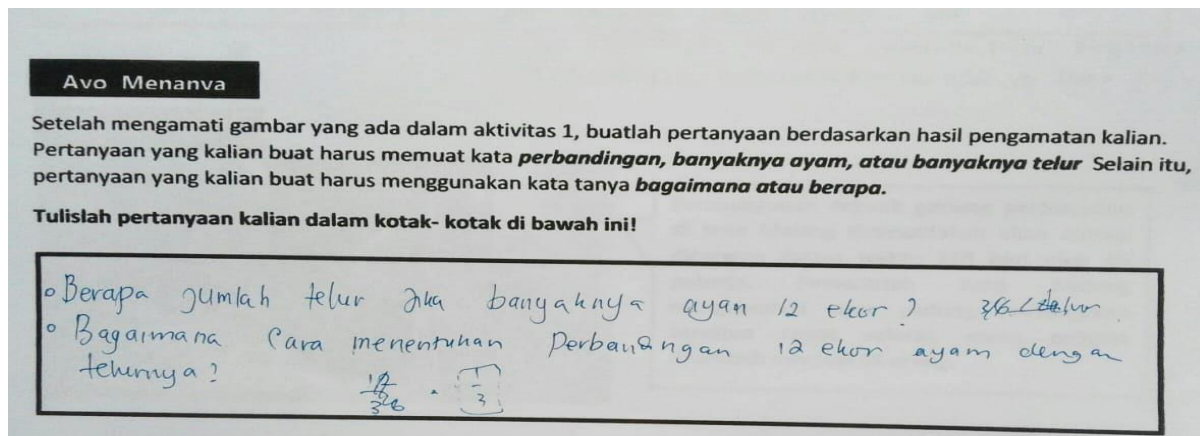 Avo Menanva
Setelah mengamati gambar yang ada dalam aktivitas 1, buatlah pertanyaan berdasarkan hasil pengamatan kalian.
Pertanyaan yang kalian buat harus memuat kata perbandingan, banyaknya ayam, atau banyaknya telur Selain itu,
pertanyaan yang kalian buat harus menggunakan kata tanya bagaimana atau berapa.
Tulislah pertanyaan kalian dalam kotak- kotak di bawah ini!
Berapa jumlah telur jika banyaknya ayan 12 ekor? 36 telur
Bagaimana Cara menentukan Perbandngan 12 ekor ayam dengan
telurnya?
12/36 1/3